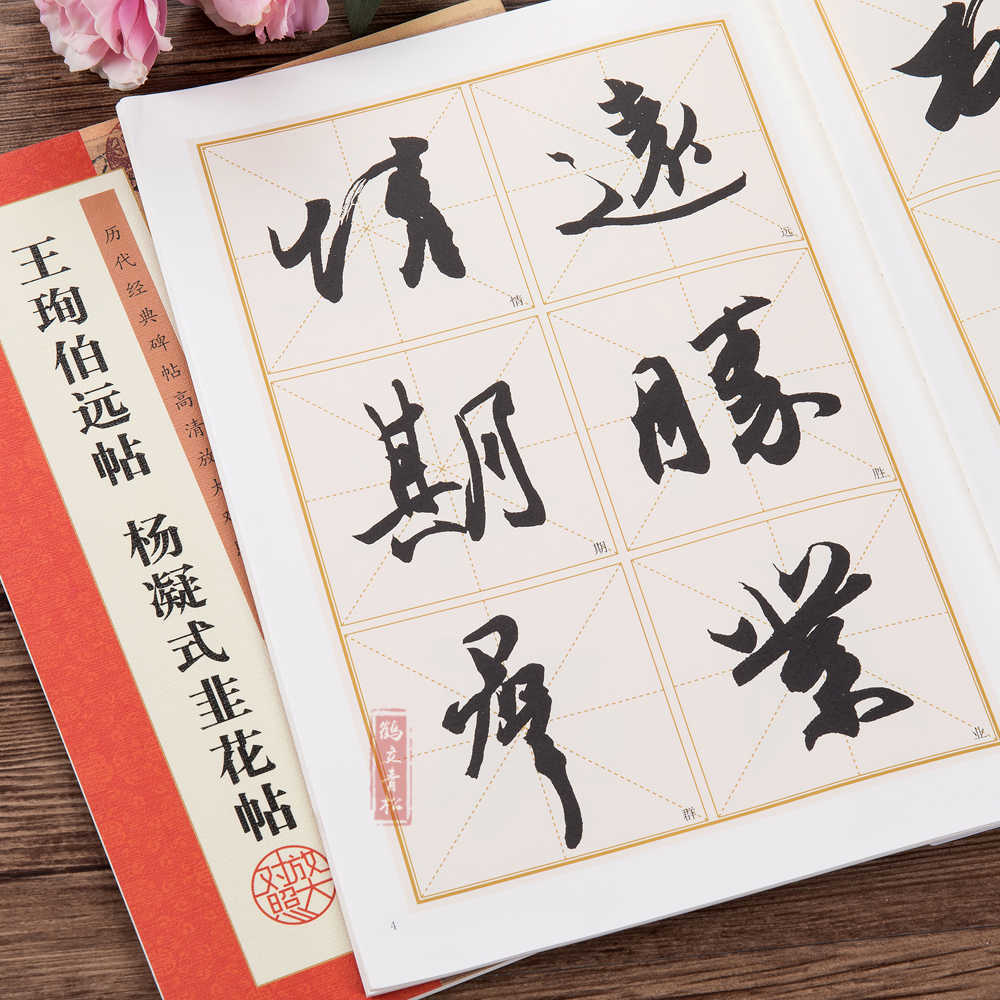 历代经典碑帖高清放大
王珣伯远帖 杨凝式韭花帖
放大
对照
遠
远
勝
胜、
業
业、
情
情、
期
期、
群、
鹤立青松
4